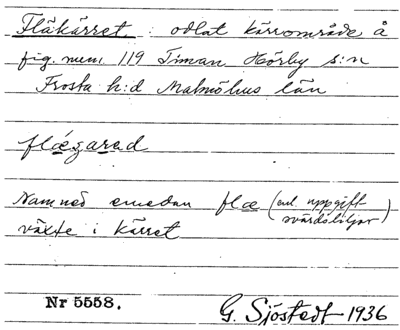 Fläkärret : odlat kärrområde å
fig. num. 119 Timan Hörby s:n
Frosta h:d Malmöhus län
flǽgarad
Namned emedan flæ (enl. uppgift
svärdsliljor)
växte i kärret
Nr 5558.
G. Sjöstedt 1936